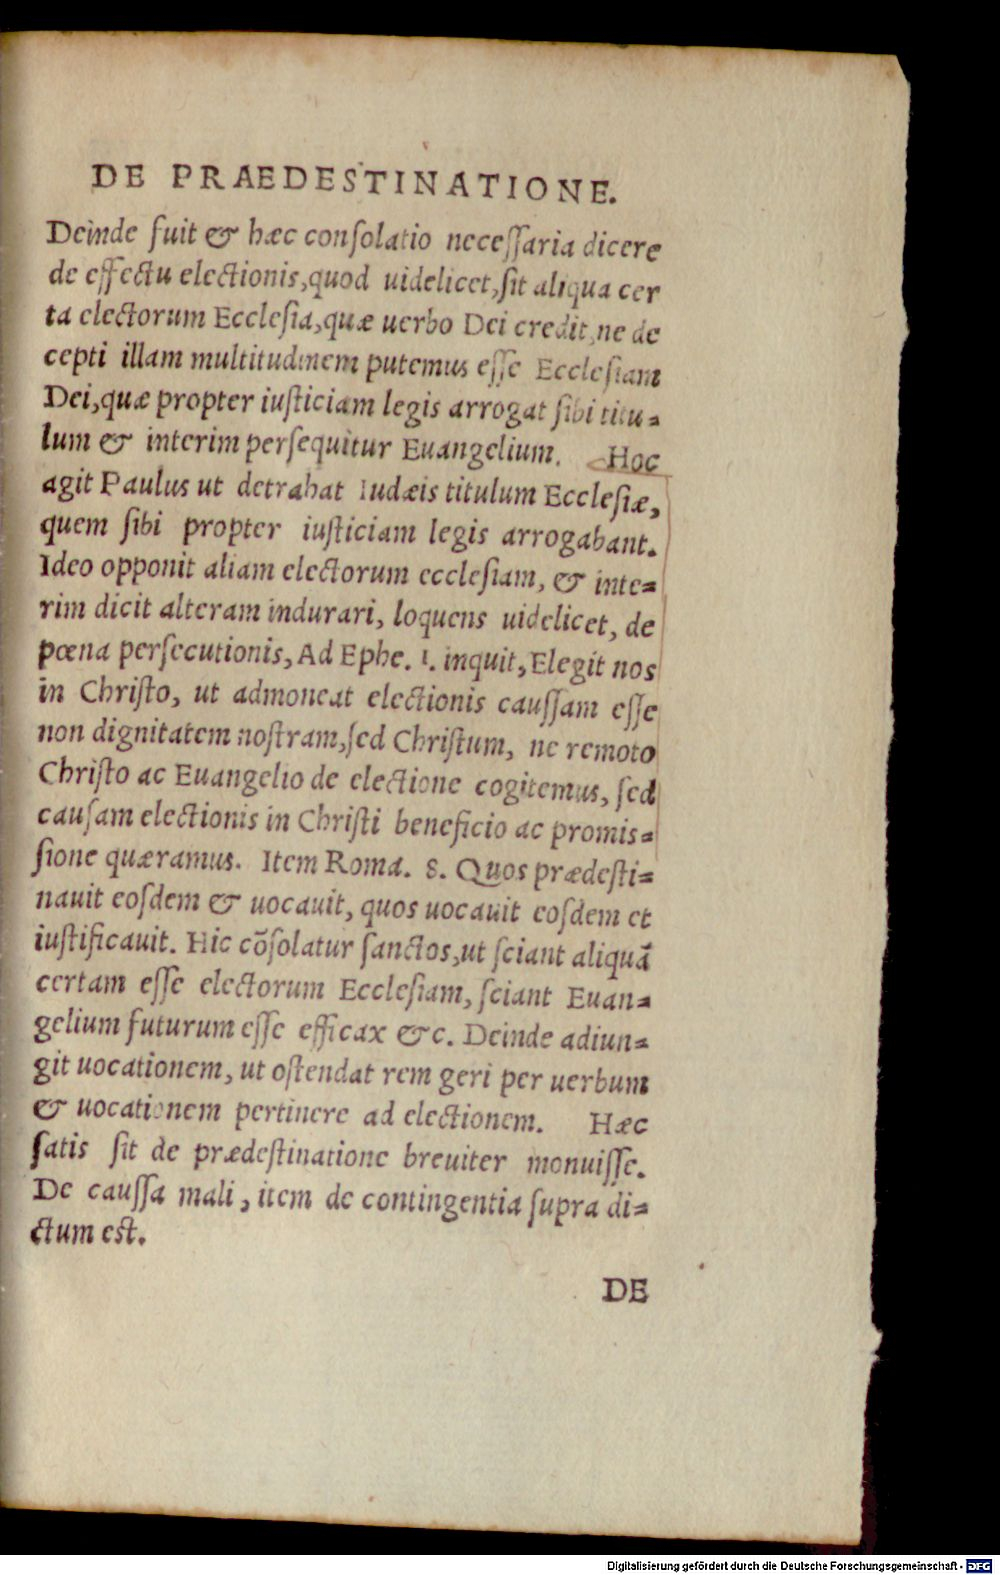 DE PRAEDESTINATIONE.
Deinde fuit & hæc conſolatio neceſſaria dicere
de effectu electionis,quod uidelicet,ſit aliqua cer
ta electorum Eccleſia,quæ uerbo Dei credit,ne de
cepti illam multitudinem putemus eſſe Eccleſiam
Dei,quæ propter iuſticiam legis arrogat ſibi titu=
lum & interim perſequitur Euangelium. Hoc
agit Paulus ut detrahat Iudæis titulum Eccleſiæ,
quem ſibi propter iuſticiam legis arrogabant.
Ideo opponit aliam electorum eccleſiam, & inte=
rim dicit alteram indurari, loquens uidelicet, de
pœna perſecutionis, Ad Ephe. 1. inquit, Elegit nos
in Chriſto, ut admoneat electionis cauſſam eſſe
non dignitatem noſtram,ſed Chriſtum, ne remoto
Chriſto ac Euangelio de electione cogitemus, ſed
cauſam electionis in Chriſti beneficio ac promis=
ſione quæramus. Item Roma. 8. Quos prædeſti=
nauit eoſdem & uocauit, quos uocauit eoſdem et
iuſtificauit. Hic cõſolatur ſanctos,ut ſciant aliquã
certam eſſe electorum Eccleſiam, ſciant Euan=
gelium futurum eſſe efficax &c. Deinde adiun=
git uocationem, ut oſtendat rem geri per uerbum
& uocationem pertinere ad electionem. Hæc
ſatis ſit de prædeſtinatione breuiter monuiſſe.
De cauſſa mali, item de contingentia ſupra di=
ctum est.
DE
Digitalisierung gefördert durch die Deutsche Forschungsgemeinschaft - DFG